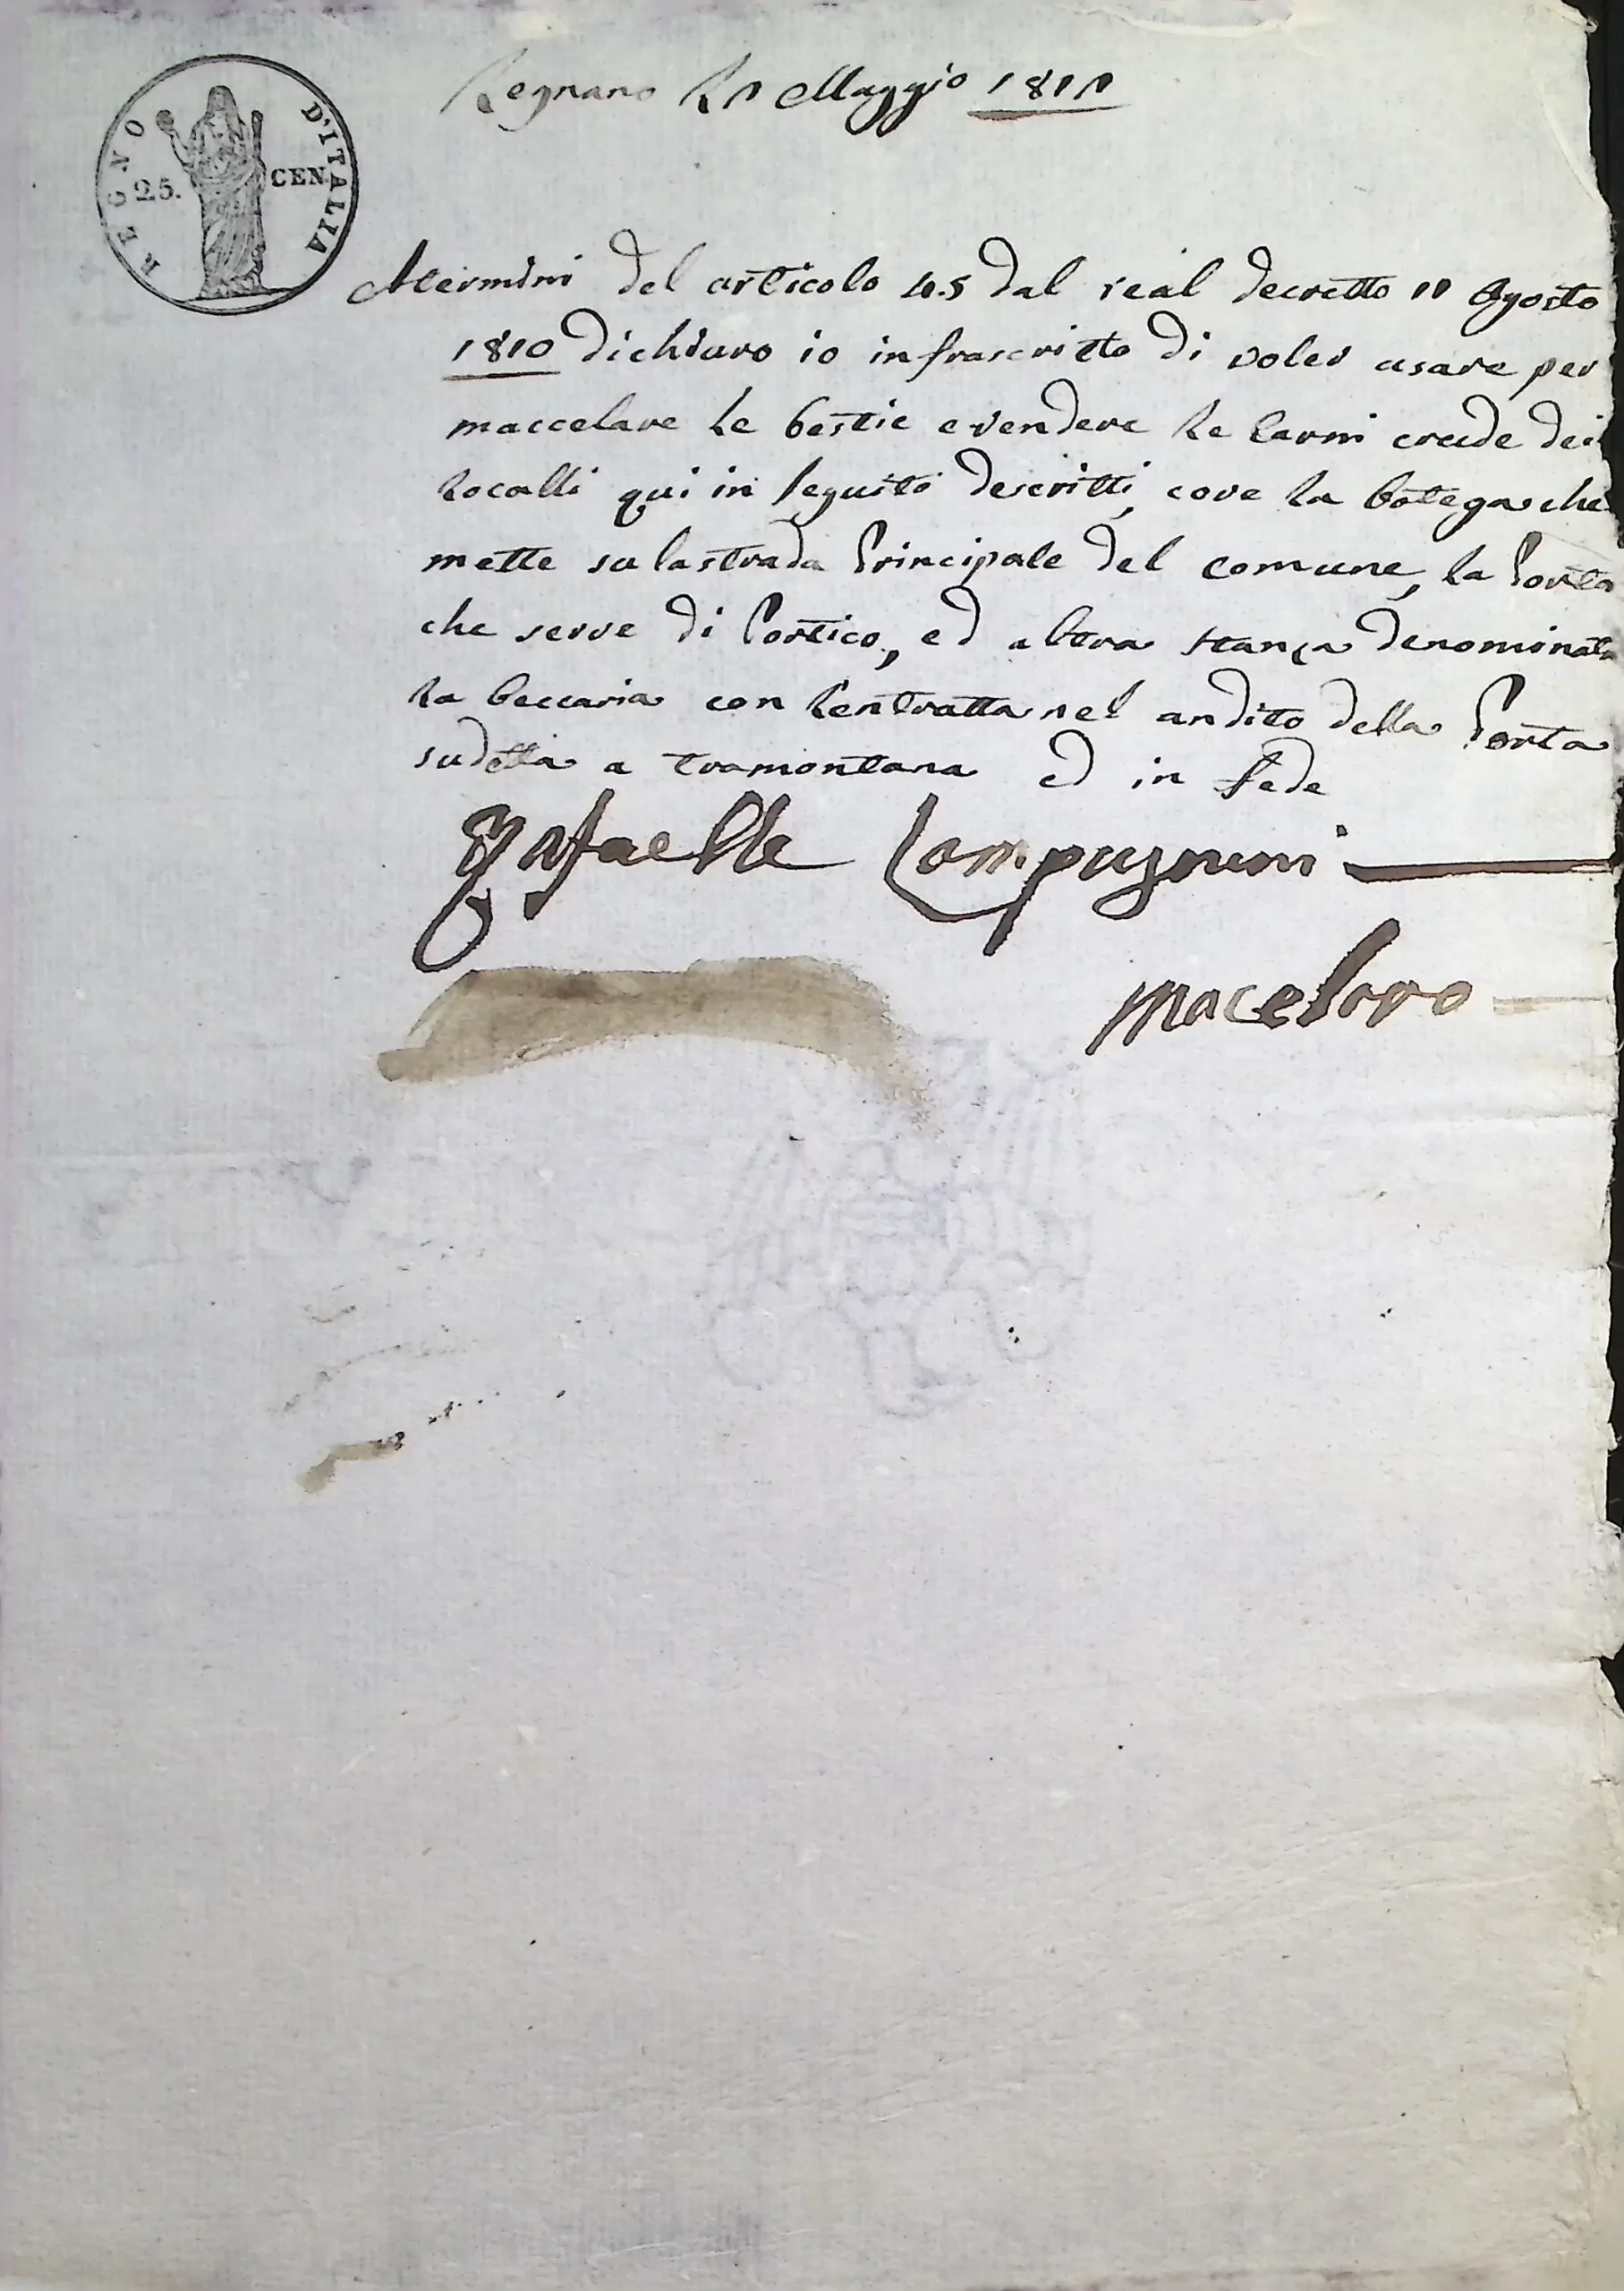 REGNO D'ITALIA
25. CEN.
Legnano li 1 Maggio 1811
A termini del articolo 45 dal real decretto 11 Agosto
1810 dichiaro io infrascritto di voler usare per
maccelare le bestie e vendere le carni crude dei
localli qui in seguito descritti, cove la botega che
mette su la strada Principale del comune, la Porta
che serve di Portico, ed altra stanza denominata
la beccaria con l'entratta nel andito della Porta
sudetta a tramontana ed in fede
Rafaelle Lampugnani
Macelaro